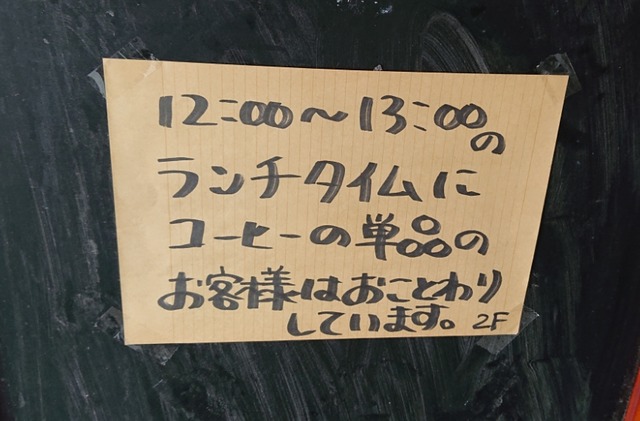 12:00〜13:00の
ランチタイムに
コーヒーの単品の
お客様はおことわり
しています。2F